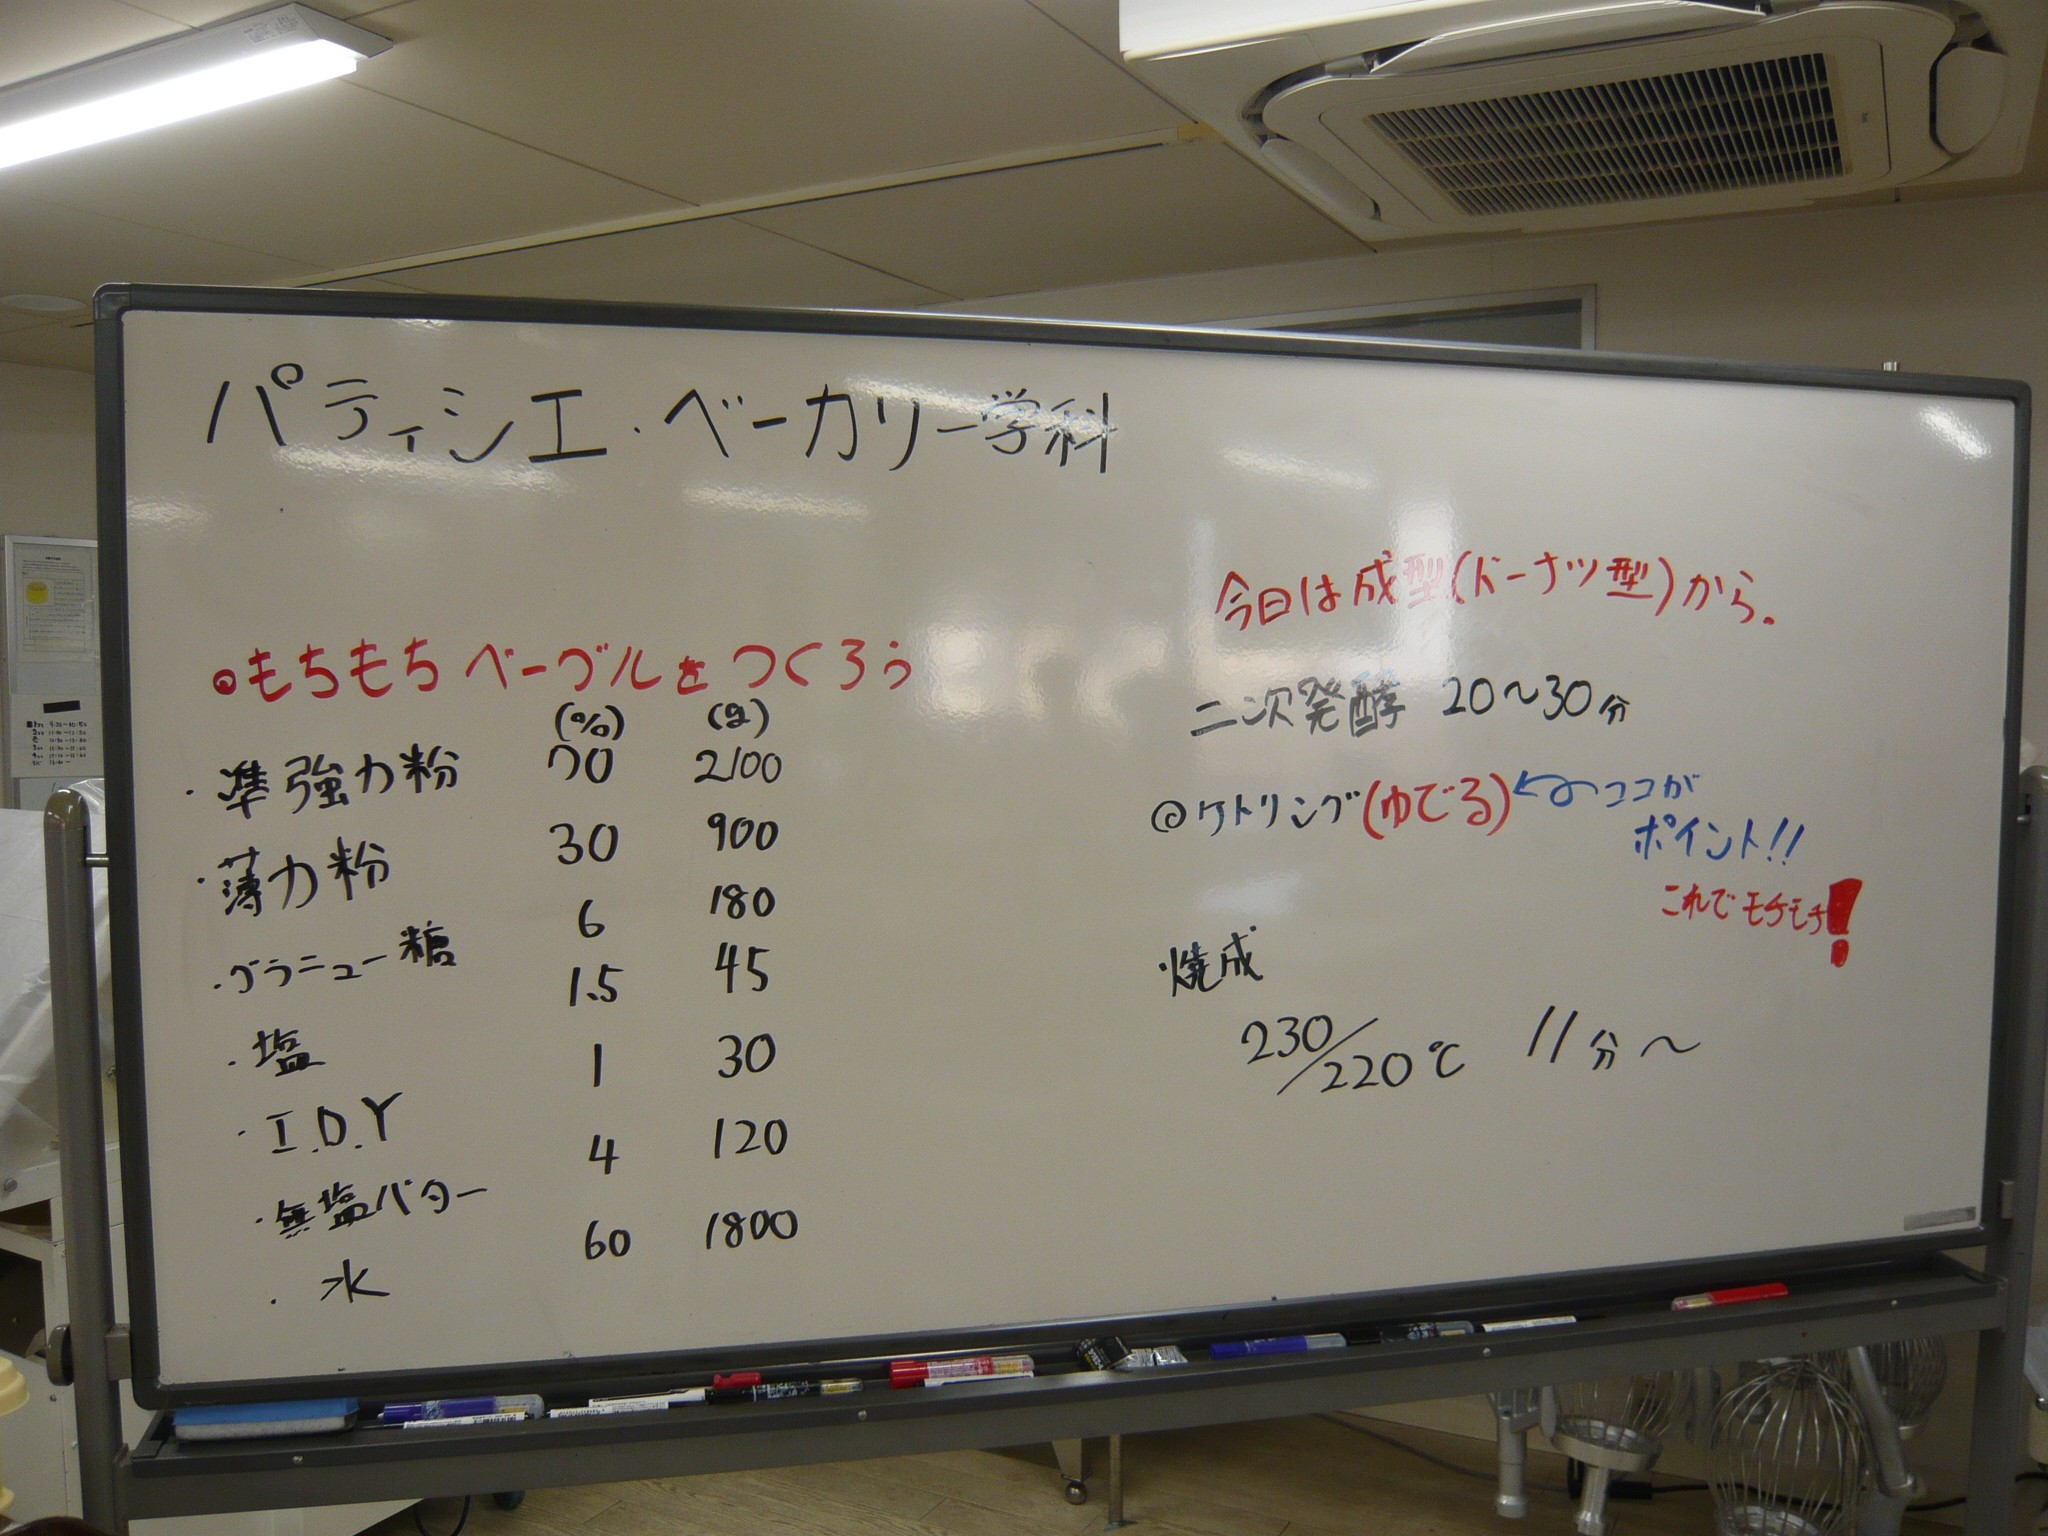 パティシエ・ベーカリー学科
◎もちもちベーグルをつくろう
(%) (g)
・準強力粉 70 2100
・薄力粉 30 900
・グラニュー糖 6 180
・塩 1.5 45
・I.D.Y 1 30
・無塩バター 4 120
・水 60 1800
今日は成型(ドーナツ型)から.
二次発酵 20〜30分
◎ケトリング(ゆでる) ココが
ポイント!!
これでモチモチ!
・焼成
230/220℃ 11分〜